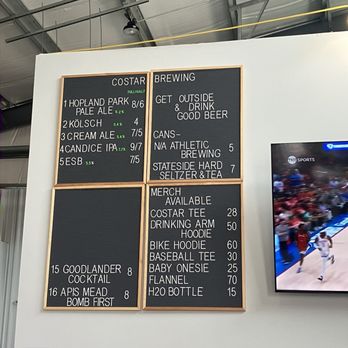 COSTAR BREWING
FULL/HALF
1 HOPLAND PARK 8/6
PALE ALE
2 KÖLSCH 4
3 CREAM ALE 7/5
4 CANDICE IPA 9/7
5 ESB 7/5
15 GOODLANDER 8
COCKTAIL
16 APIS MEAD 8
BOMB FIRST
GET OUTSIDE
& DRINK
GOOD BEER
CANS-
N/A ATHLETIC 5
BREWING
STATESIDE HARD 7
SELTZER & TEA
MERCH
AVAILABLE
COSTAR TEE 28
DRINKING ARM 50
HOODIE
BIKE HOODIE 60
BASEBALL TEE 30
BABY ONESIE 25
FLANNEL 70
H2O BOTTLE 15
TNT SPORTS